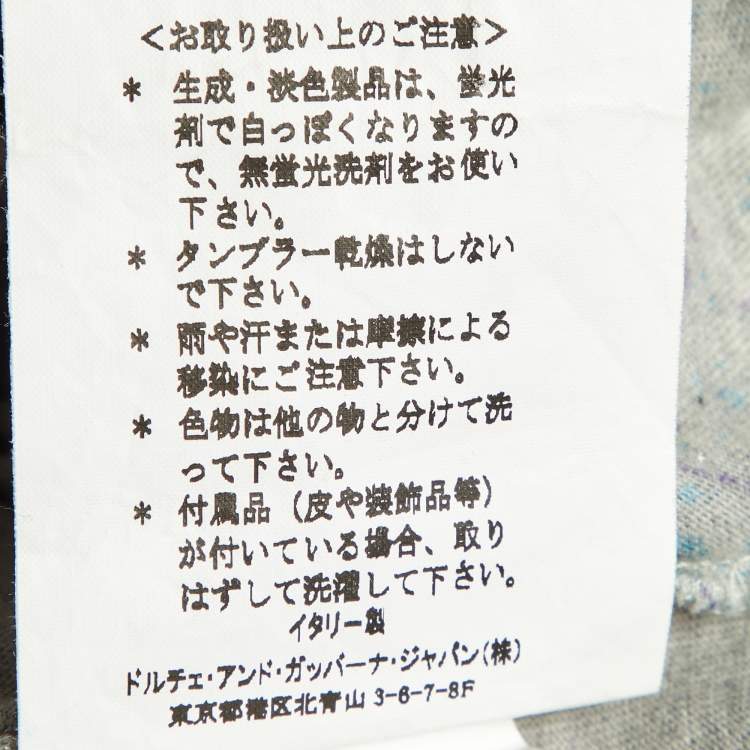 ＜お取り扱い上のご注意＞
* 生成・淡色製品は、蛍光
剤で白っぽくなりますの
で、無蛍光洗剤をお使い
下さい。
* タンブラー乾燥はしない
で下さい。
* 雨や汗または摩擦による
移染にご注意下さい。
* 色物は他の物と分けて洗
って下さい。
* 付属品（皮や装飾品等）
が付いている場合、取り
はずして洗濯して下さい。
イタリー製
ドルチェ・アンド・ガッバーナ・ジャパン(株)
東京都港区北青山 3-6-7-8F